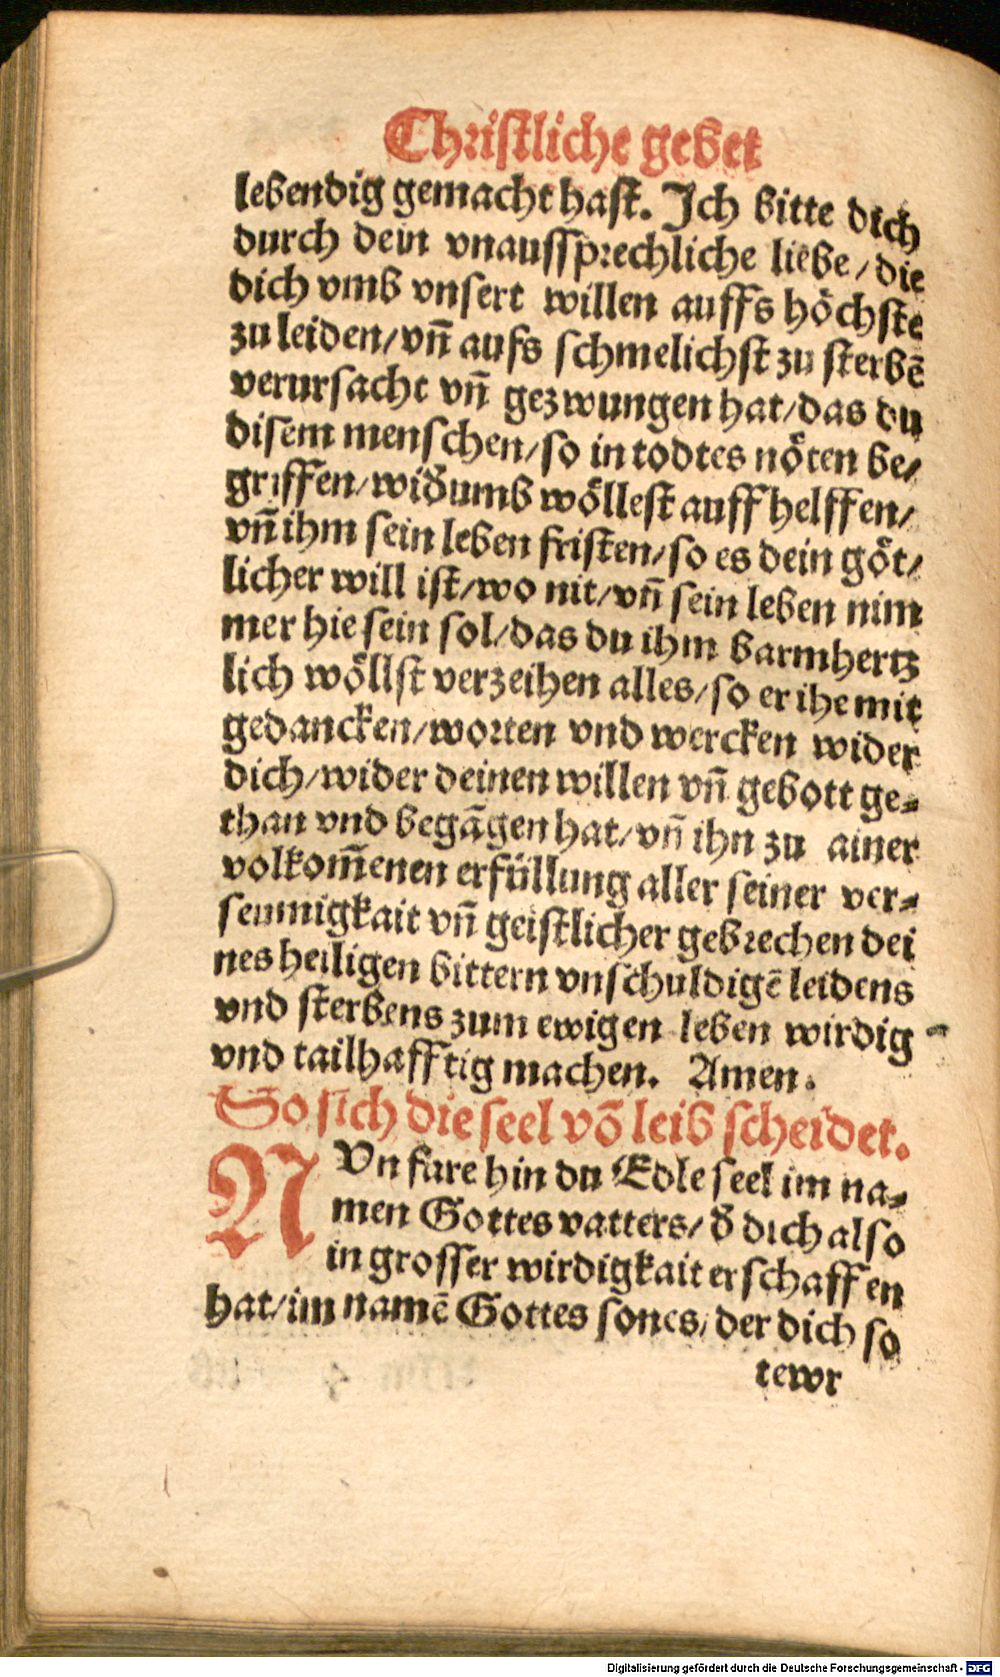 Christliche gebet
lebendig gemacht hast. Ich bitte dich
durch dein vnaussprechliche liebe/die
dich vmb vnsert willen auffs höchste
zu leiden/vñ aufs schmelichst zu sterbē
verursacht vñ gezwungen hat/das du
disem menschen/so in todtes nöten be/
griffen/widumb wöllest auff helffen/
vñ ihm sein leben fristen/so es dein göt/
licher will ist/wo nit/vñ sein leben nim
mer hie sein sol/das du ihm barmhertz
lich wöllst verzeihen alles/so er ihe mit
gedancken/worten vnd wercken wider
dich/wider deinen willen vñ gebott ge-
than vnd begāgen hat/vñ ihn zu ainer
volkom̄enen erfüllung aller seiner ver-
seumigkait vñ geistlicher gebrechen dei
nes heiligen bittern vnschuldigē leidens
vnd sterbens zum ewigen leben wirdig
vnd tailhafftig machen. Amen.
So sich die seel vō leib scheidet.
NVn fare hin du Edle seel im na-
men Gottes vatters/ď dich also
in grosser wirdigkait erschaffen
hat/im namē Gottes sones/der dich so
tewr
Digitalisierung gefördert durch die Deutsche Forschungsgemeinschaft - DFG